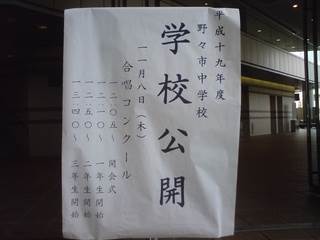 平成十九年度
野々市中学校
学校公開
一一月八日（木）
合唱コンクール
一二.〇五～　開会式
一二.一〇～　一年生開始
一二.五〇～　二年生開始
一三.四〇～　三年生開始